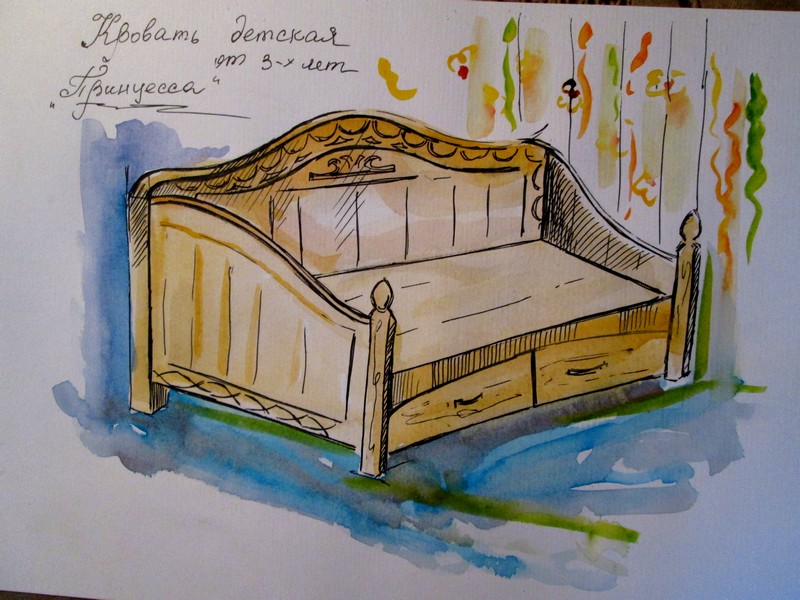 Кровать детская
от 3-х лет
"Принцесса"